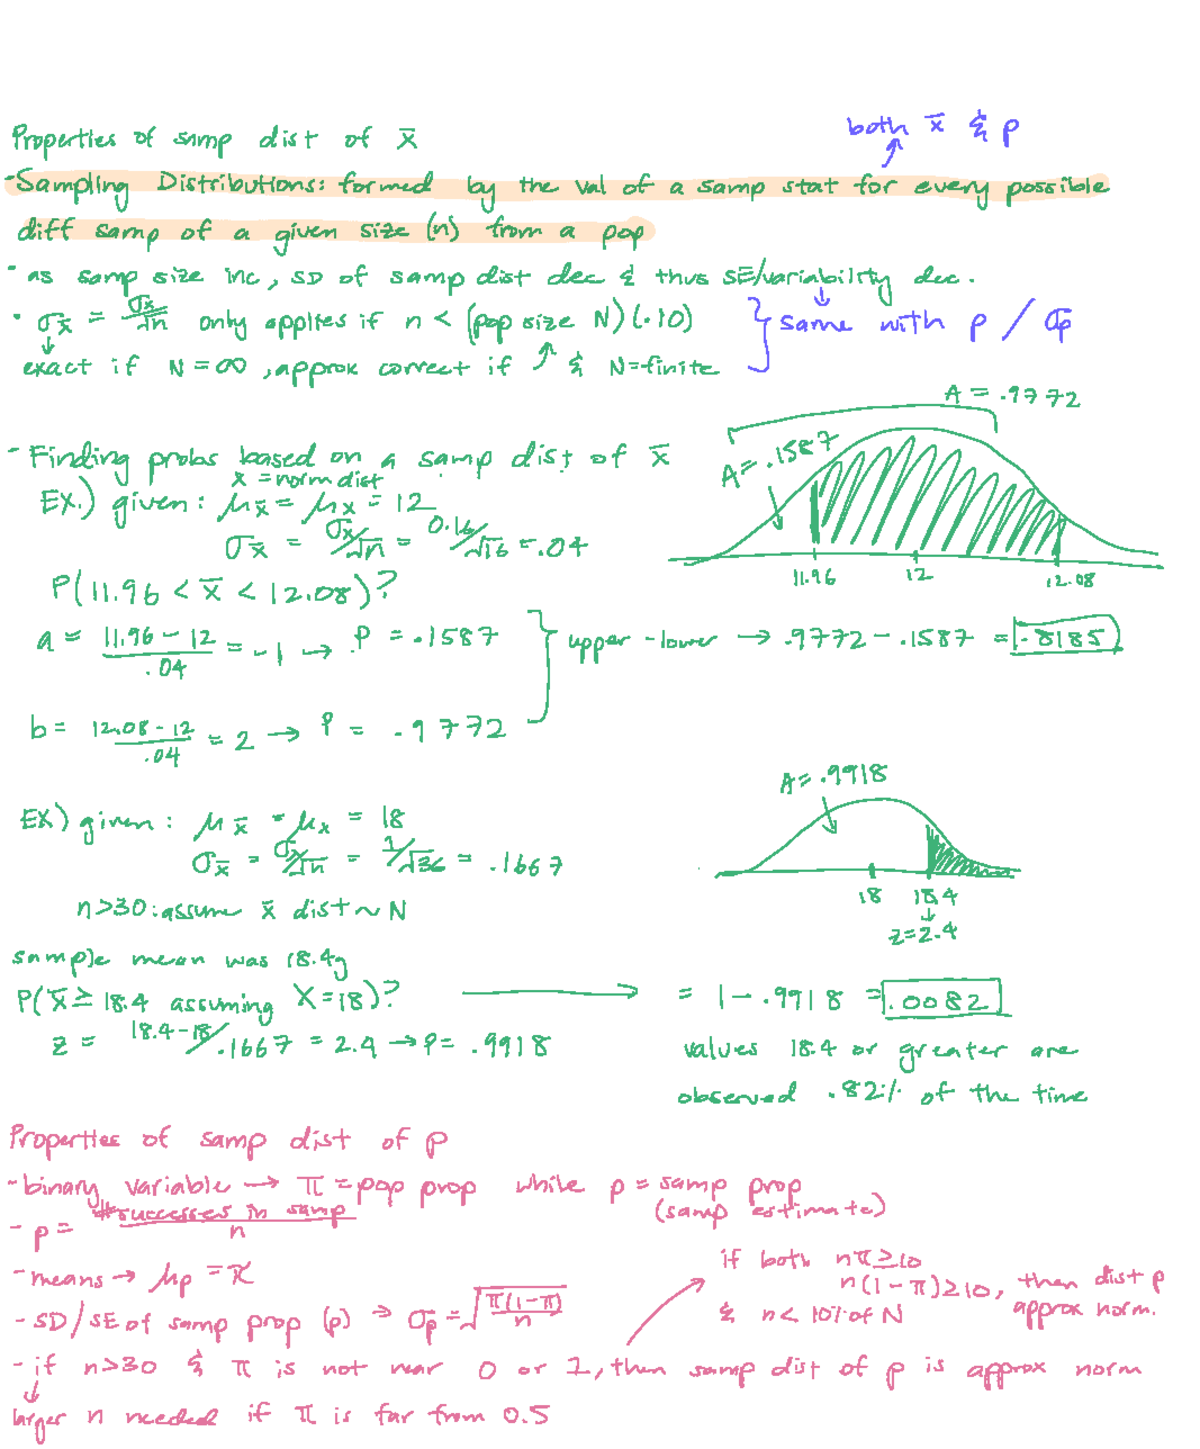 Properties of samp dist of x̄
both x̄ & p
- Sampling Distributions: formed by the val of a samp stat for every possible
diff samp of a given size (n) from a pop
- as samp size inc, SD of samp dist dec & thus SE/variability dec.
· σx̄ = σx/√n only applies if n < (pop size N)(.10)
exact if N = ∞, approx correct if ↑ & N = finite
} same with p / σp
A = .9772
A = .1587
11.96 12 12.08
- Finding probs based on a samp dist of x̄
x = norm dist
EX.) given: μx̄ = μx = 12
σx̄ = σx/√n = 0.16/√16 = .04
P(11.96 < x̄ < 12.08)?
a = 11.96 - 12 / .04 = -1 → P = .1587
} upper - lower → .9772 - .1587 = .8185
b = 12.08 - 12 / .04 = 2 → P = .9772
A = .9918
18 18.4
↓
z = 2.4
EX) given: μx̄ = μx = 18
σx̄ = σx/√n = 1/√36 = .1667
n>30: assume x̄ dist ~ N
sample mean was 18.4g
P(x̄ ≥ 18.4 assuming X = 18)? → = 1 - .9918 = .0082
z = 18.4 - 18/.1667 = 2.4 → P = .9918
values 18.4 or greater are
observed .82% of the time
Properties of samp dist of p
- binary variable → π = pop prop while p = samp prop
(samp estimate)
- p = # successes in samp / n
- means → μp = π
- SD/SE of samp prop (p) → σp = √π(1-π)/n
if both nπ ≥ 10
n(1-π) ≥ 10, then dist p
& n < 10% of N approx norm.
- if n>30 & π is not near 0 or 1, then samp dist of p is approx norm
↓
larger n needed if π is far from 0.5